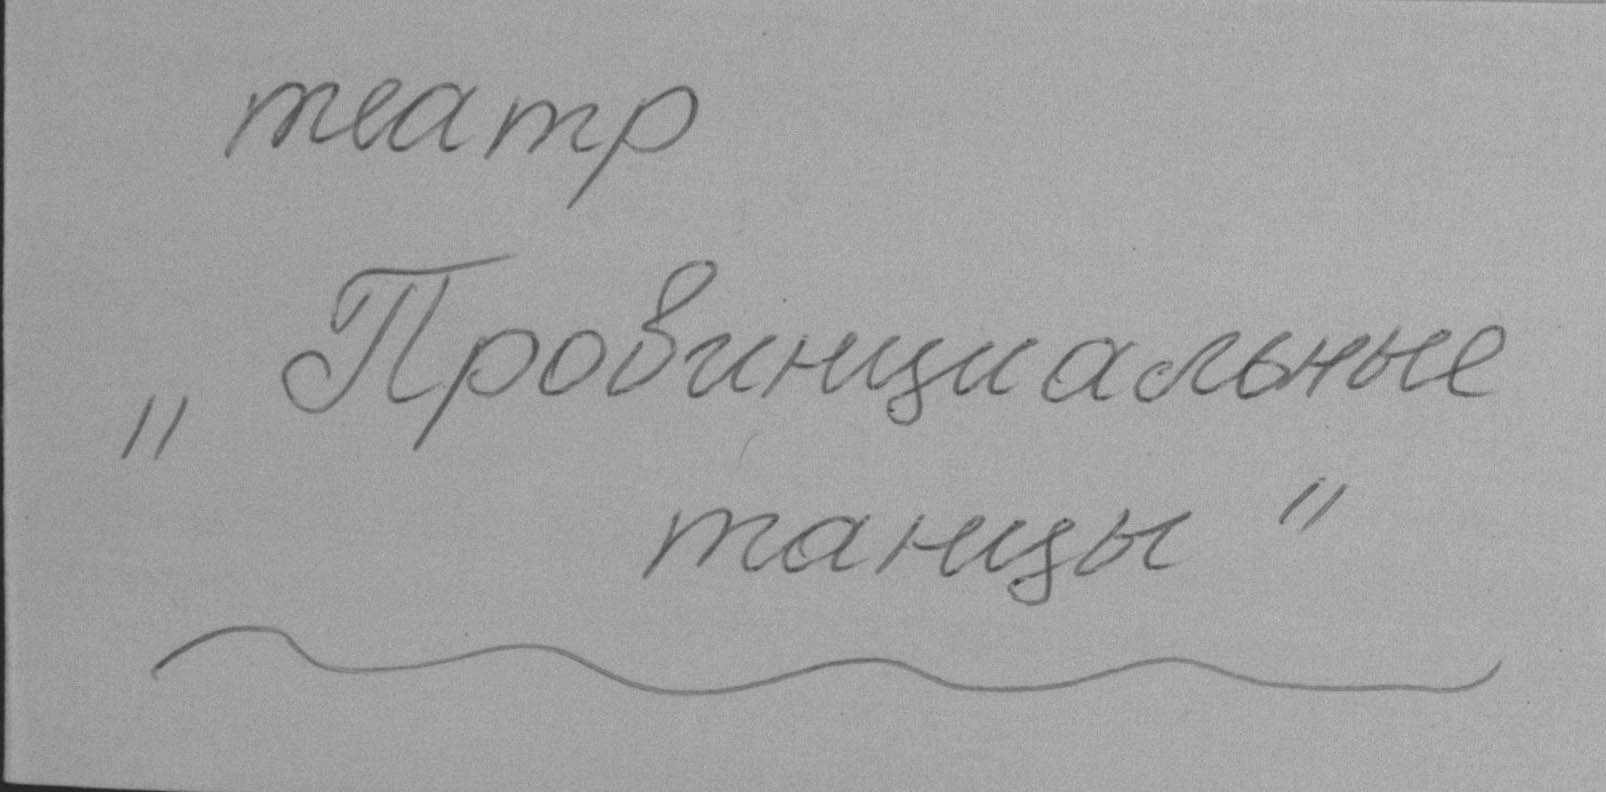 театр
„ Провинциальные
танцы "